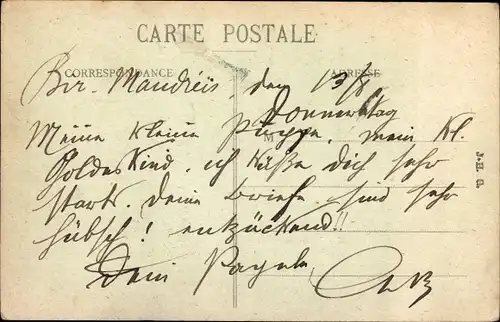 CARTE POSTALE
CORRESPONDANCE
ADRESSE
Bir-Mandreis, den 13/8
Donnerstag
M
Meine kleine Puppe, mein kl.
Goldeskind, ich küße Dich sehr
stark. Deine Briefe sind sehr
hübsch! entzückend!!
Dein
J.H. G.